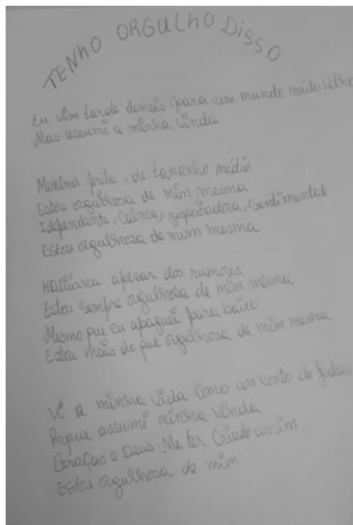 TENHO ORGULHO DISSO
Eu vim tarde demais para um mundo muito
Mas assumi a minha vinda
Menina preta, de tamanho médio
Estou orgulhosa de mim mesma
Idependente, Calma, respeitadora, Sentimental
Estou orgulhosa de mim mesma
Haitiana apesar dos rumores
Estou sempre orgulhosa de mim mesma
Mesmo que eu apaguei para
Estou mais do que orgulhosa de mim mesma
Vi a minha vida Como um conto de fadas
Porque assumi minha vinda
Graças a Deus Me ter Criado assim
Estou orgulhosa de mim